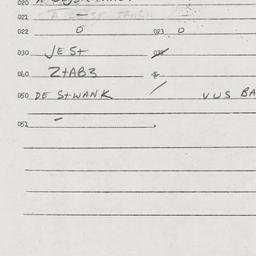 020
021 -
022 0 023 0
030 JESt
040 ZtAB3
050 DE StWANK / VUS BA
051 -